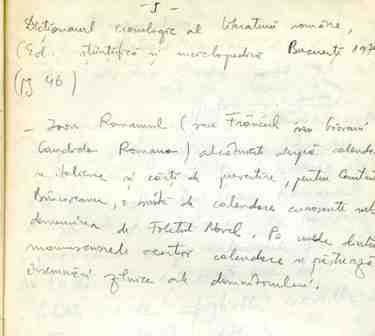 - 5 -
Dicționarul cronologic al literaturii române,
(Ed. științifică și enciclopedică București 197
(pg 46)
- Ioan Romanul (sau Frâncul sau Giovanni
Candido Romano) alcătuiește după calendare
italiene și cărți de prevestire, pentru Constantin
Brâncoveanu, o suită de calendare cunoscute sub
denumirea de Foletul Novel. Pe unele dintre
manuscrisele acestor calendare se păstrează
însemnări zilnice ale domnitorului.